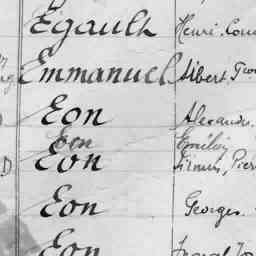 Egault Henri
Emmanuel Albert
Eon Alexandre
Eon Émilien
D Eon Firmin, Pier
Eon Georges
Eon